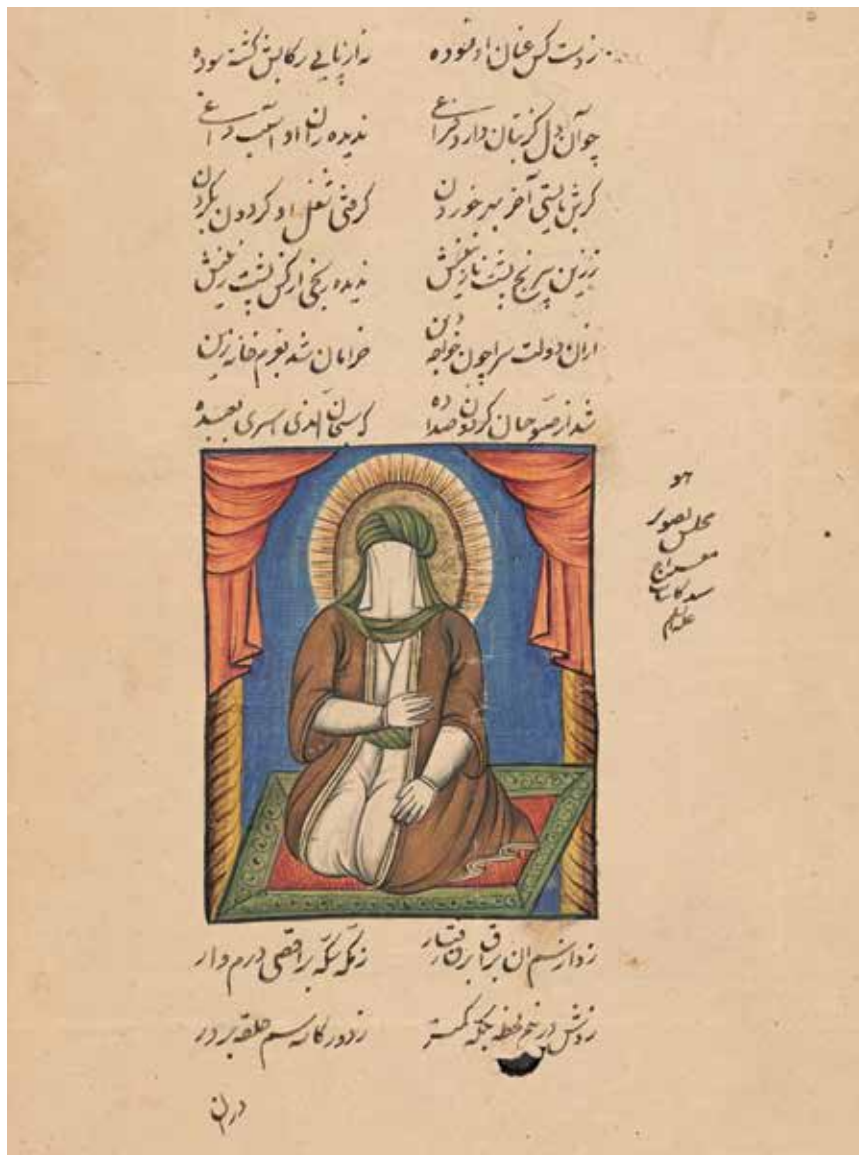 ز دست کس عنان او نسوده نه از پایی رکابش گشته سوده
چو آن دل کز بتان دارد فراغی ندیده ران او آسیب داغی
گرش بایستی آخر بهر خوردن گرفتی او گردون بگردن
ز زین بی رنج پشت نازنینش ندیده رنجی از کس پشت زینش
ازان دولت سرا چون خواجه دین خرامان شد بعزم خانه زین
شد از سبوحیان گردون صدا ده که سبحان الذی اسری بعبده
هو
مجلس تصویر
معراج
سید کاینات
علیه السلام
زد از سم آن براق برق رفتار ز مکه سکه بر اقصی درم وار
زدش در نیم لحظه بلکه کمتر ز دور کاسه سم حلقه بر در
دران